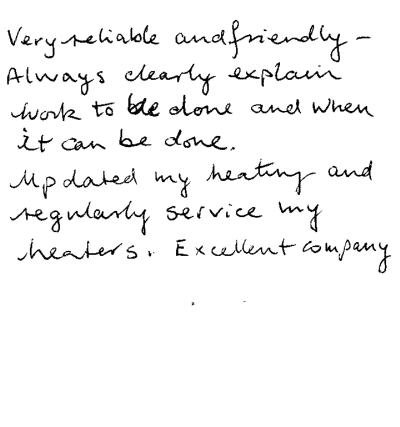 Very reliable and friendly -
Always clearly explain
work to be done and when
it can be done.
Updated my heating and
regularly service my
heaters. Excellent company